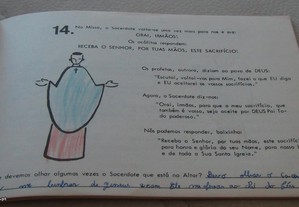 14.
No Altar, o Sacerdote volta-se uma vez mais para nós e diz:
ORAI, IRMÃOS!
Os acólitos respondem:
RECEBA O SENHOR, POR TUAS MÃOS, ESTE SACRIFÍCIO!
Os profetas, outrora, diziam ao povo de DEUS:
"Escutai, voltai-vos para Mim, fazei o que Eu digo
e EU aceitarei os vossos sacrifícios"
Agora, o Sacerdote diz-nos:
"Orai, irmãos, para que o meu sacrifício, que
também é vosso, seja aceite por DEUS Pai To-
do poderoso."
Nós podemos responder, baixinho:
"Receba o Senhor, por tuas mãos, este sacrifício
para honra e glória do seu Nome, para nosso
e de toda a Sua Santa Igreja".
devemos olhar algumas vezes o Sacerdote que está no Altar? Devo olhar o
lembrar de Jesus